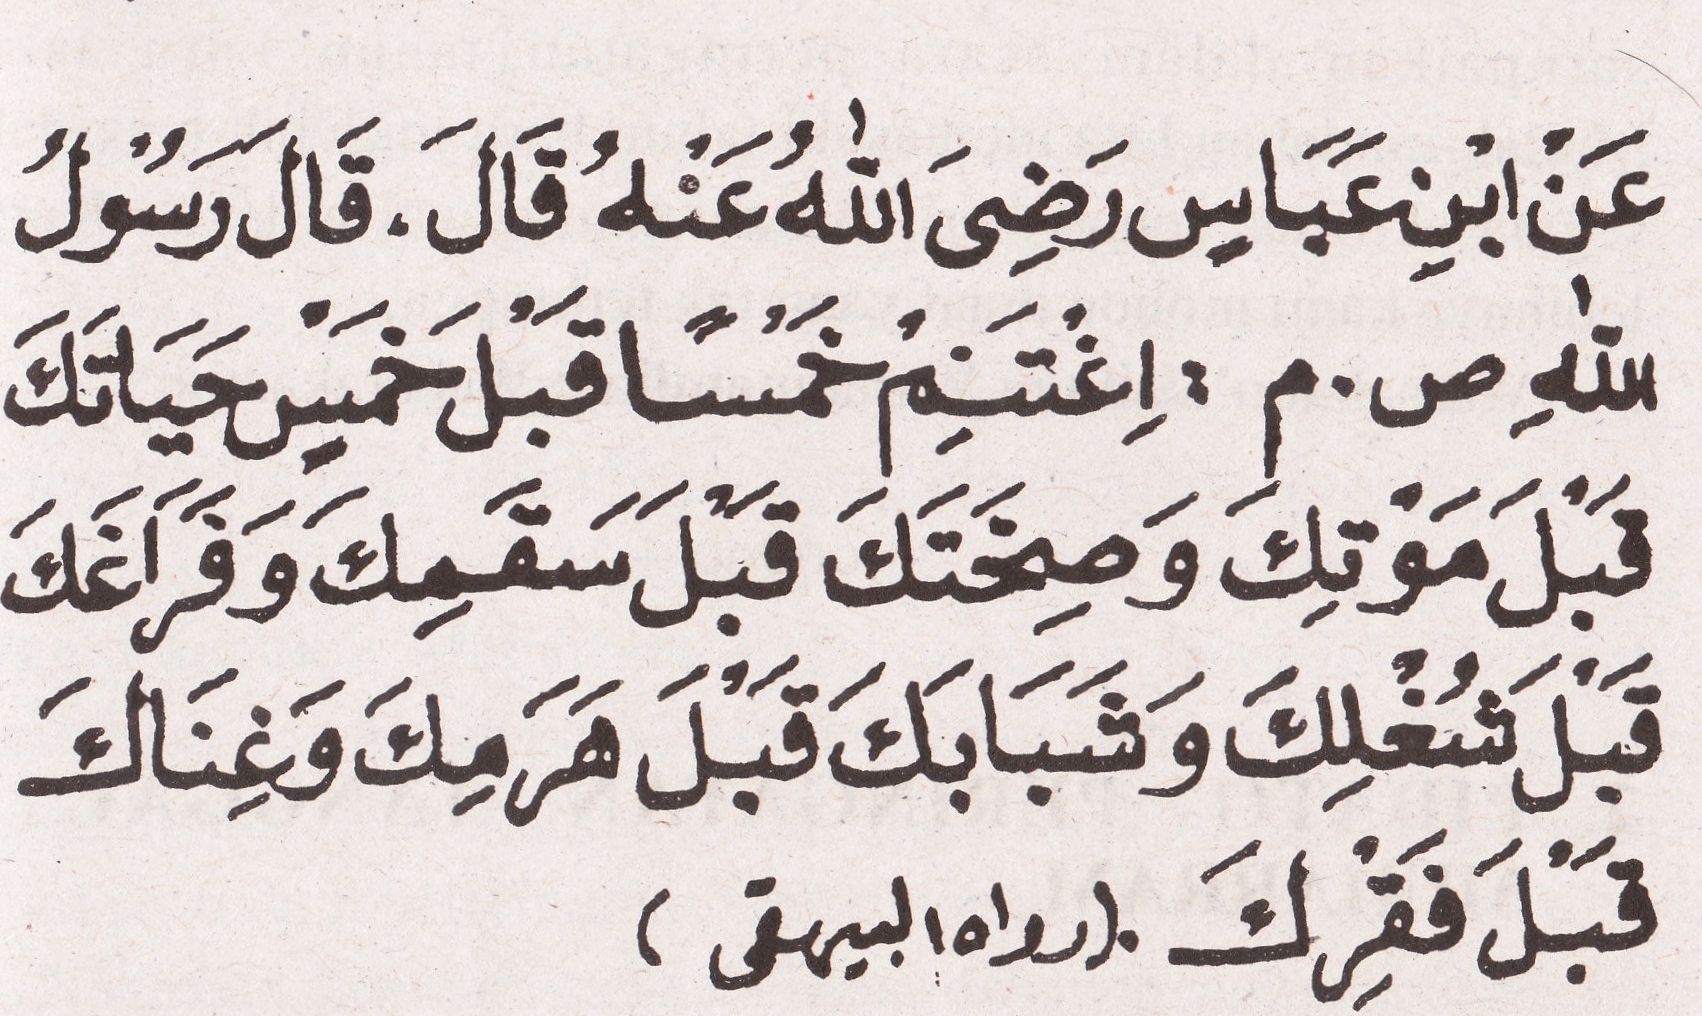 عَنْ ابْنِ عَبَاسٍ رَضِىَ اللّٰهُ عَنْهُ قَالَ. قَالَ رَسُوْلُ
اللّٰهِ ص.م : اِغْتَنِمْ خَمْسًا قَبْلَ خَمْسٍ حَيَاتَكَ
قَبْلَ مَوْتِكَ وَصِحَتَكَ قَبْلَ سَقَمِكَ وَفَرَاغَكَ
قَبْلَ شُغْلِكَ وَشَبَابَكَ قَبْلَ هَرَمِكَ وَغِنَاكَ
قَبْلَ فَقْرِكَ. (رواه البيهقى)